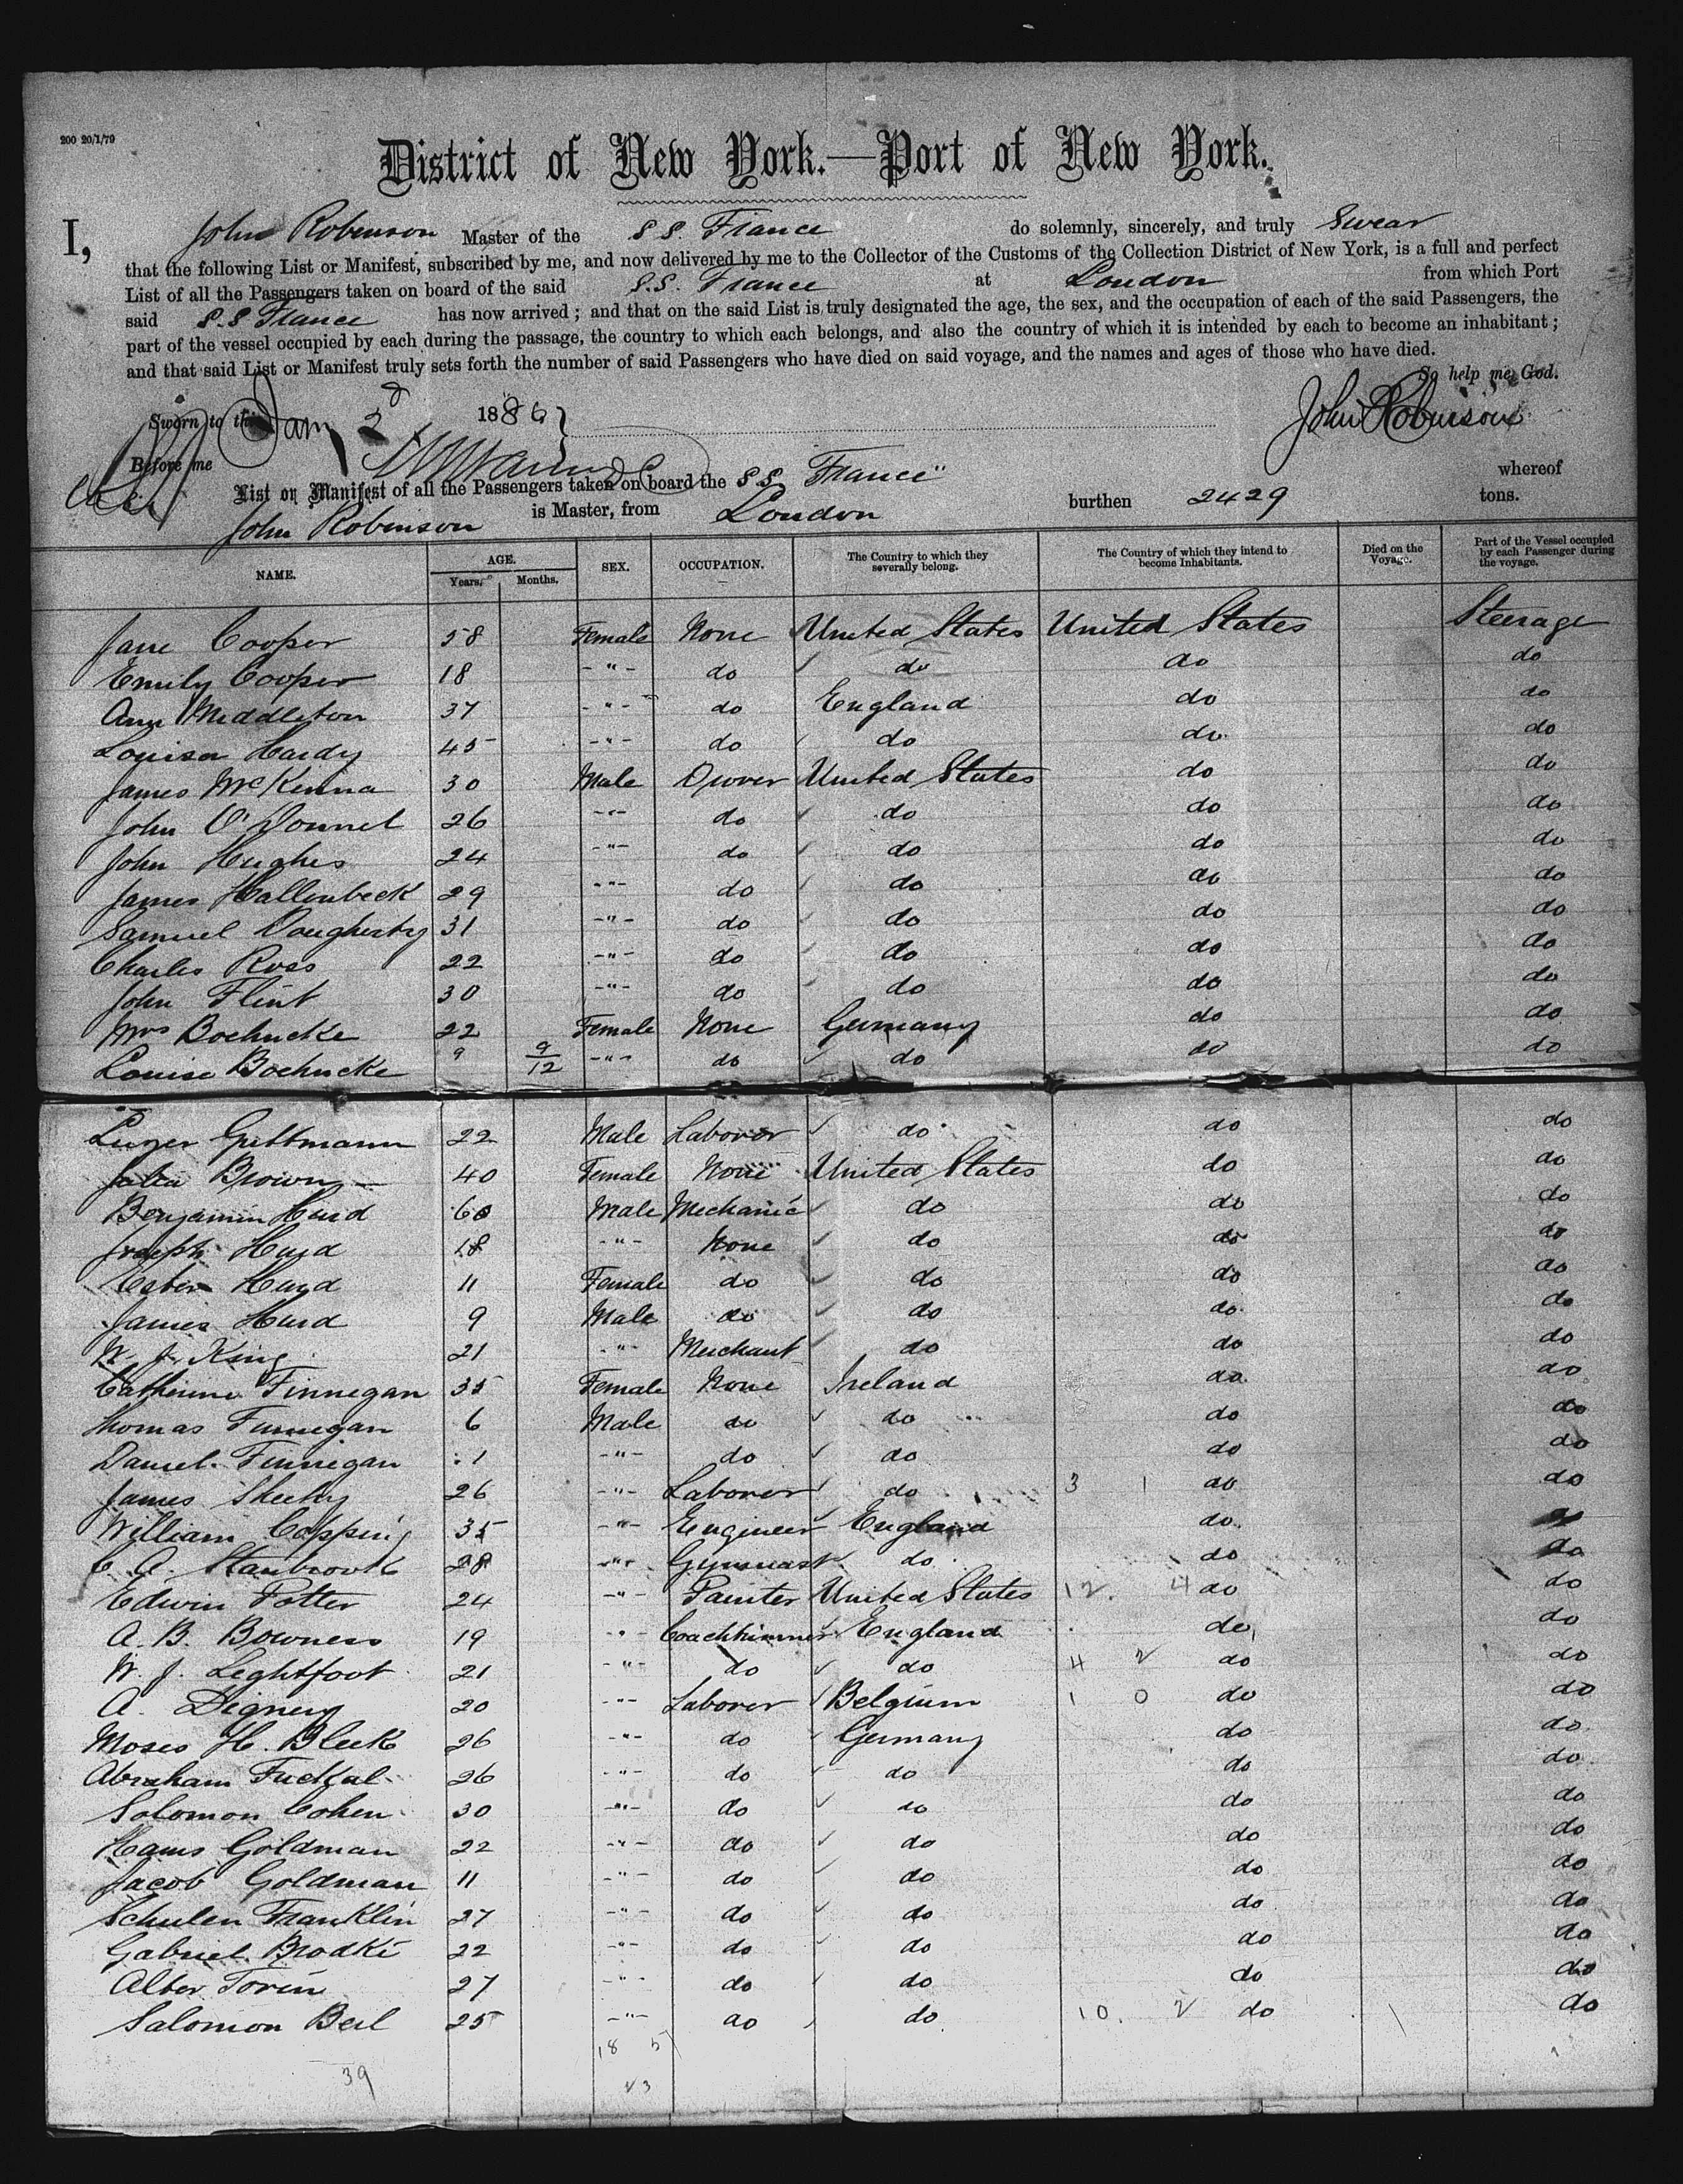 200 20/1/79
District of New York.—Port of New York.
I, John Robinson Master of the S S. France do solemnly, sincerely, and truly Swear
that the following List or Manifest, subscribed by me, and now delivered by me to the Collector of the Customs of the Collection District of New York, is a full and perfect
List of all the Passengers taken on board of the said S.S. France at London from which Port
said S.S France has now arrived; and that on the said List is truly designated the age, the sex, and the occupation of each of the said Passengers, the
part of the vessel occupied by each during the passage, the country to which each belongs, and also the country of which it is intended by each to become an inhabitant;
and that said List or Manifest truly sets forth the number of said Passengers who have died on said voyage, and the names and ages of those who have died.
So help me God.
Sworn to this Jany 2d 1886 John Robinson
Before me
List or Manifest of all the Passengers taken on board the S S France" whereof
John Robinson is Master, from London burthen 2429 tons.
NAME. AGE. SEX. OCCUPATION. The Country to which they severally belong. The Country of which they intend to become Inhabitants. Died on the Voyage. Part of the Vessel occupied by each Passenger during the voyage.
Years. Months.
Jane Cooper 58 Female None United States United States Steerage
Emily Cooper 18 -"- do do do do
Ann Middleton 37 -"- do England do do
Louisa Hardy 45 -"- do do do do
James McKenna 30 Male Drover United States do do
John O'Donnel 26 -"- do do do do
John Hughes 24 -"- do do do do
James Hallenbeck 29 -"- do do do do
Samuel Dougherty 31 -"- do do do do
Charles Ross 22 -"- do do do do
John Flint 30 -"- do do do do
Mrs Boehncke 22 Female None Germany do do
Louise Boehncke 9 9/12 -"- do do do do
Guttmann 22 Male Laborer do do do
Brown 40 Female None United States do do
Benjamin Hurd 60 Male Mechanic do do do
Joseph Hurd 18 -"- None do do do
Ester Hurd 11 Female do do do do
James Hurd 9 Male do do do do
W. J. King 21 -"- Merchant do do do
Catherine Finnegan 35 Female None Ireland do do
Thomas Finnegan 6 Male do do do do
Daniel Finnegan 1 -"- do do do do
James Sheehy 26 -"- Laborer do 3 1 do do
William Copping 35 -"- Engineer England do
C. A. Stanbrook 28 -"- Gymnast do do do
Edwin Potter 24 -"- Painter United States 12. 4 do do
A. B. Bowness 19 -"- Coachtrimmer England do do
W. J. Lightfoot 21 -"- do do 4 2 do do
A. Digney 20 -"- Laborer Belgium 1 0 do do
Moses H. Bleek 26 -"- do Germany do do
Abraham 26 -"- do do do do
Solomon Cohen 30 -"- do do do do
Hans Goldman 22 -"- do do do do
Jacob Goldman 11 -"- do do do do
Schulen Franklin 27 -"- do do do do
Gabriel Brodki 22 -"- do do do do
Alber Torin 27 -"- do do do do
Salomon Beil 25 -"- do do 10. 2 do do
18 5
39